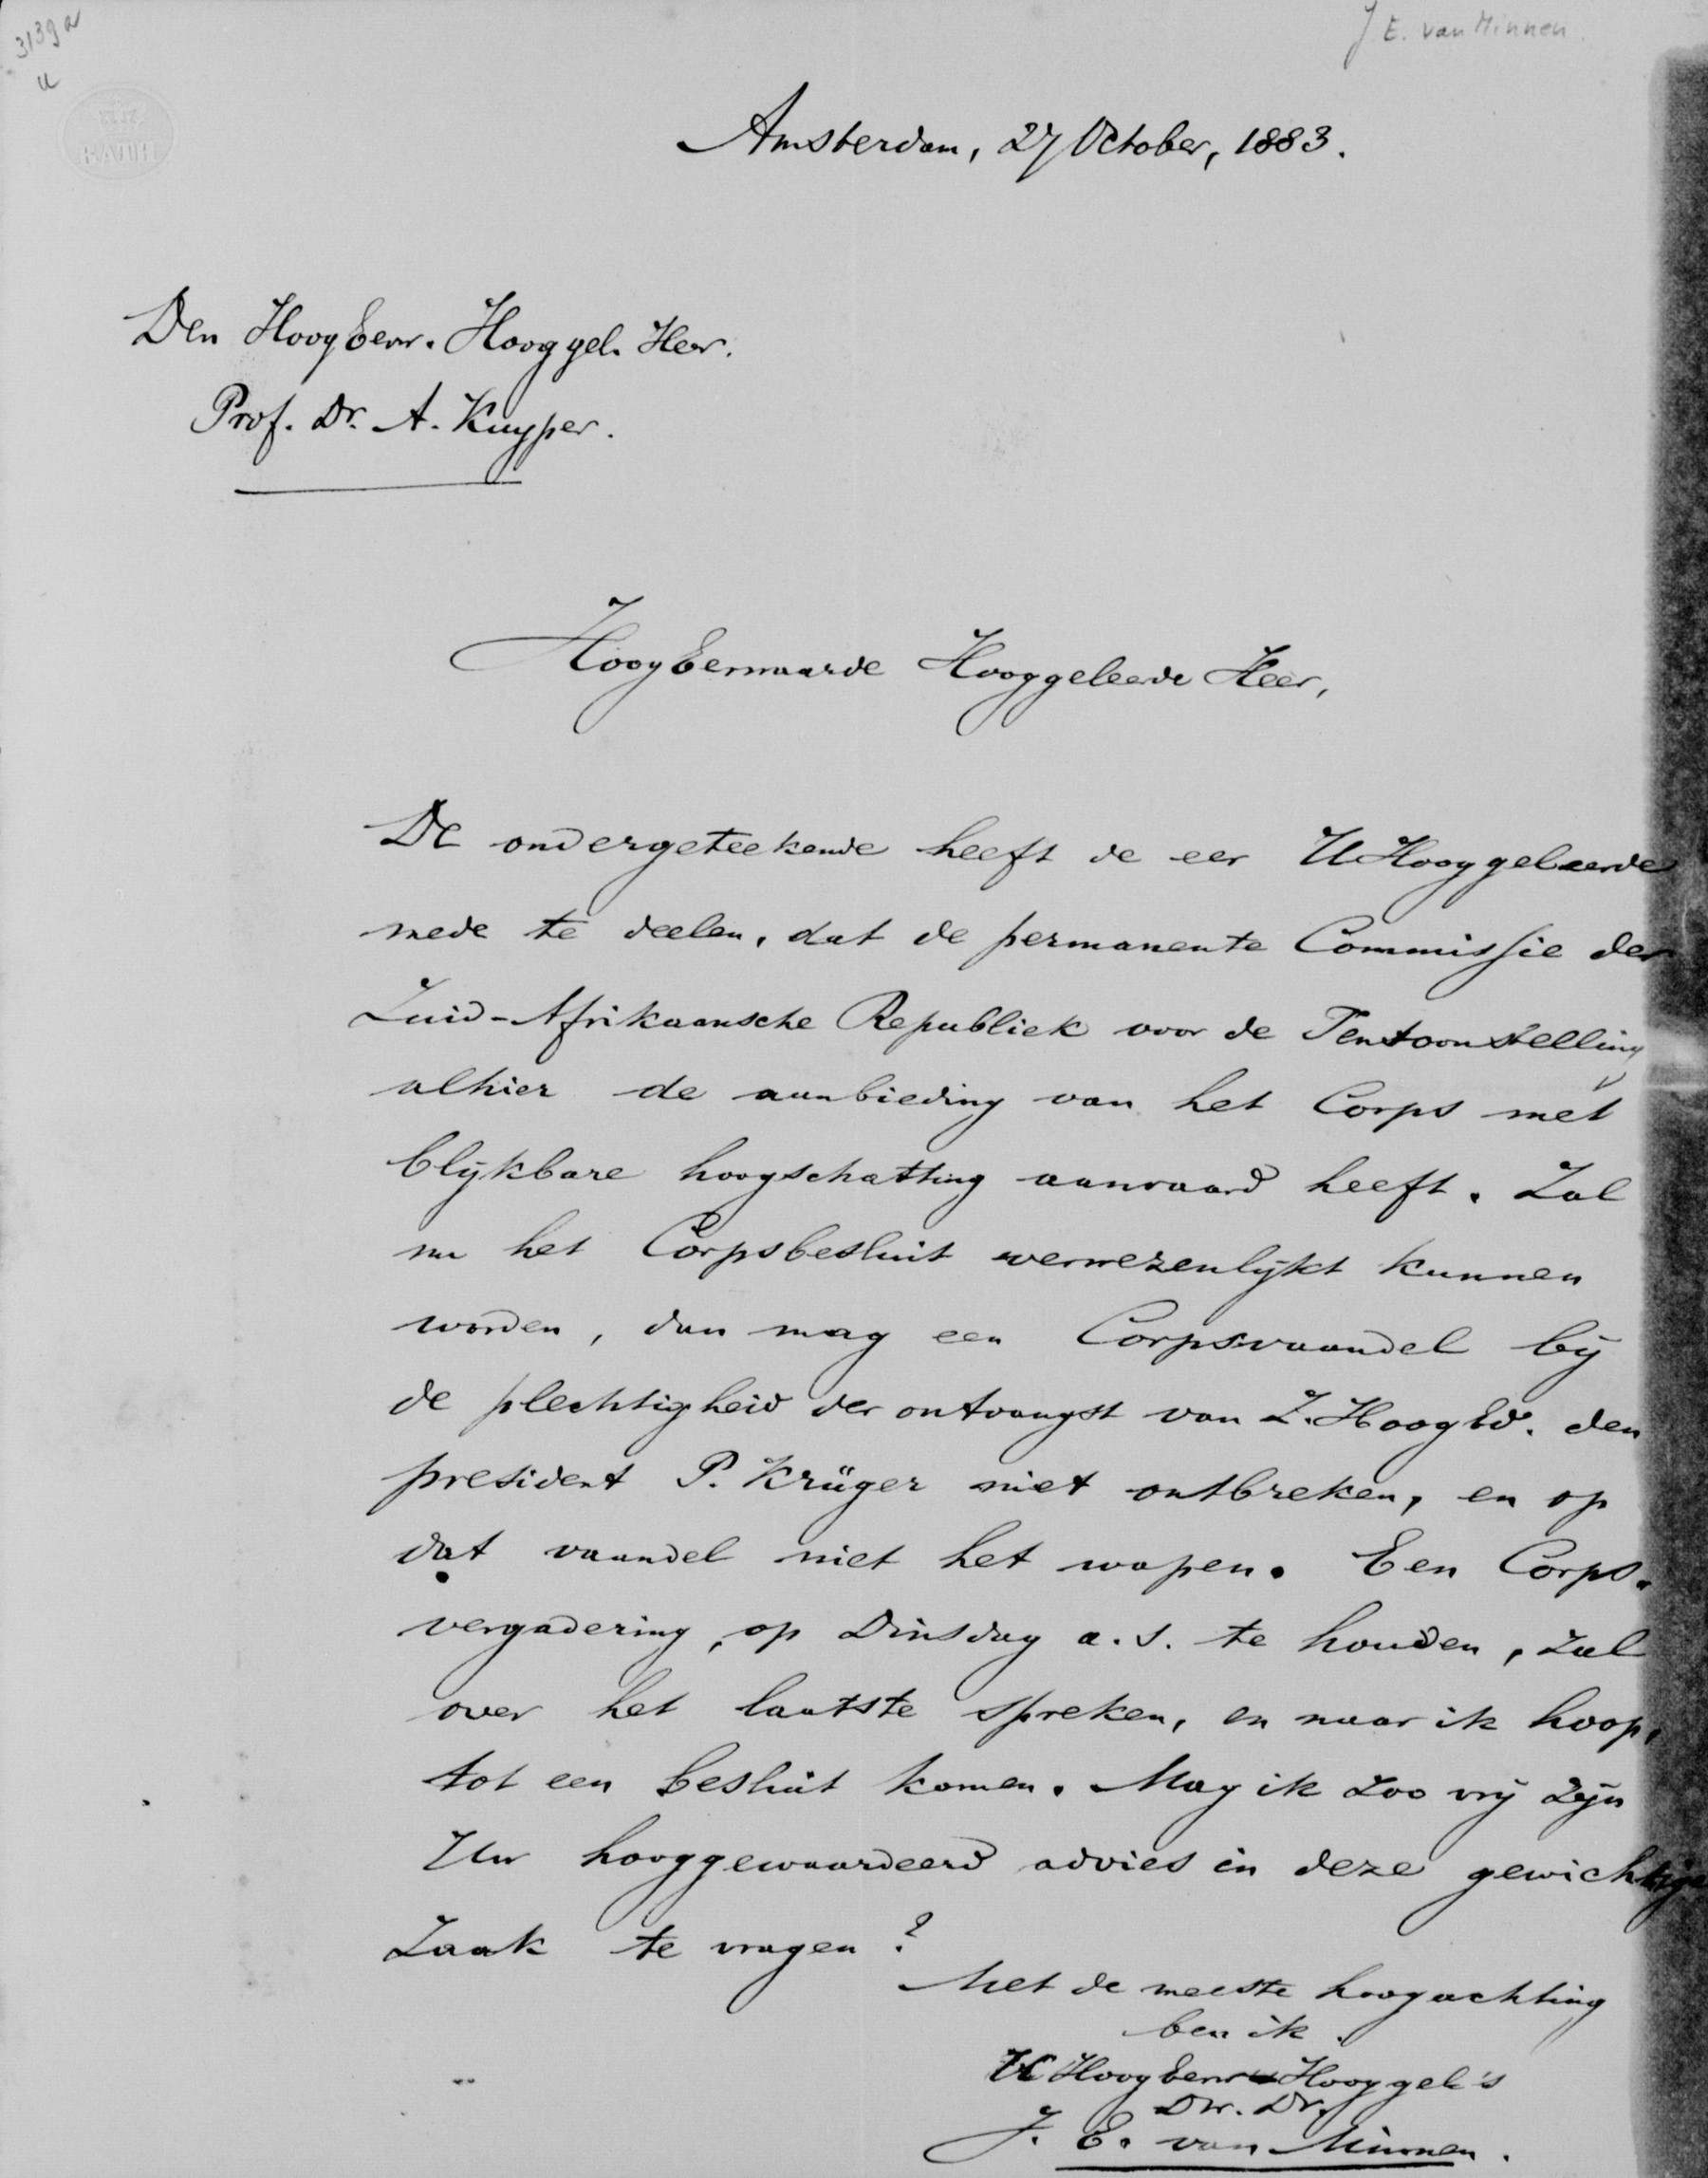 3139a
J. E. van Minnen.
Amsterdam, 27 October, 1883.
Den HoogEerw. Hooggel. Heer.
Prof. Dr. A. Kuyper.
HoogEerwaarde Hooggeleerde Heer,
De ondergeteekende heeft de eer UHooggeleerde
mede te deelen, dat de permanente Commissie der
Zuid-Afrikaansche Republiek voor de Tentoonstelling
alhier de aanbieding van het Corps met
blijkbare hoogschatting aanvaard heeft. Zal
nu het Corpsbesluit verwezenlijkt kunnen
worden, dan mag een Corpsvaandel bij
de plechtigheid der ontvangst van Z.HoogEd. den
president P. Krüger niet ontbreken, en op
dat vaandel niet het wapen. Een Corps-
vergadering, op Dinsdag a.s. te houden, zal
over het laatste spreken, en naar ik hoop,
tot een besluit komen. Mag ik zoo vrij zijn
Uw hooggewaardeerd advies in deze gewichtige
Zaak te vragen?
Met de meeste hoogachting
ben ik
UHoogEerw Hooggel's
Dw. Dr.
J. E. van Minnen.